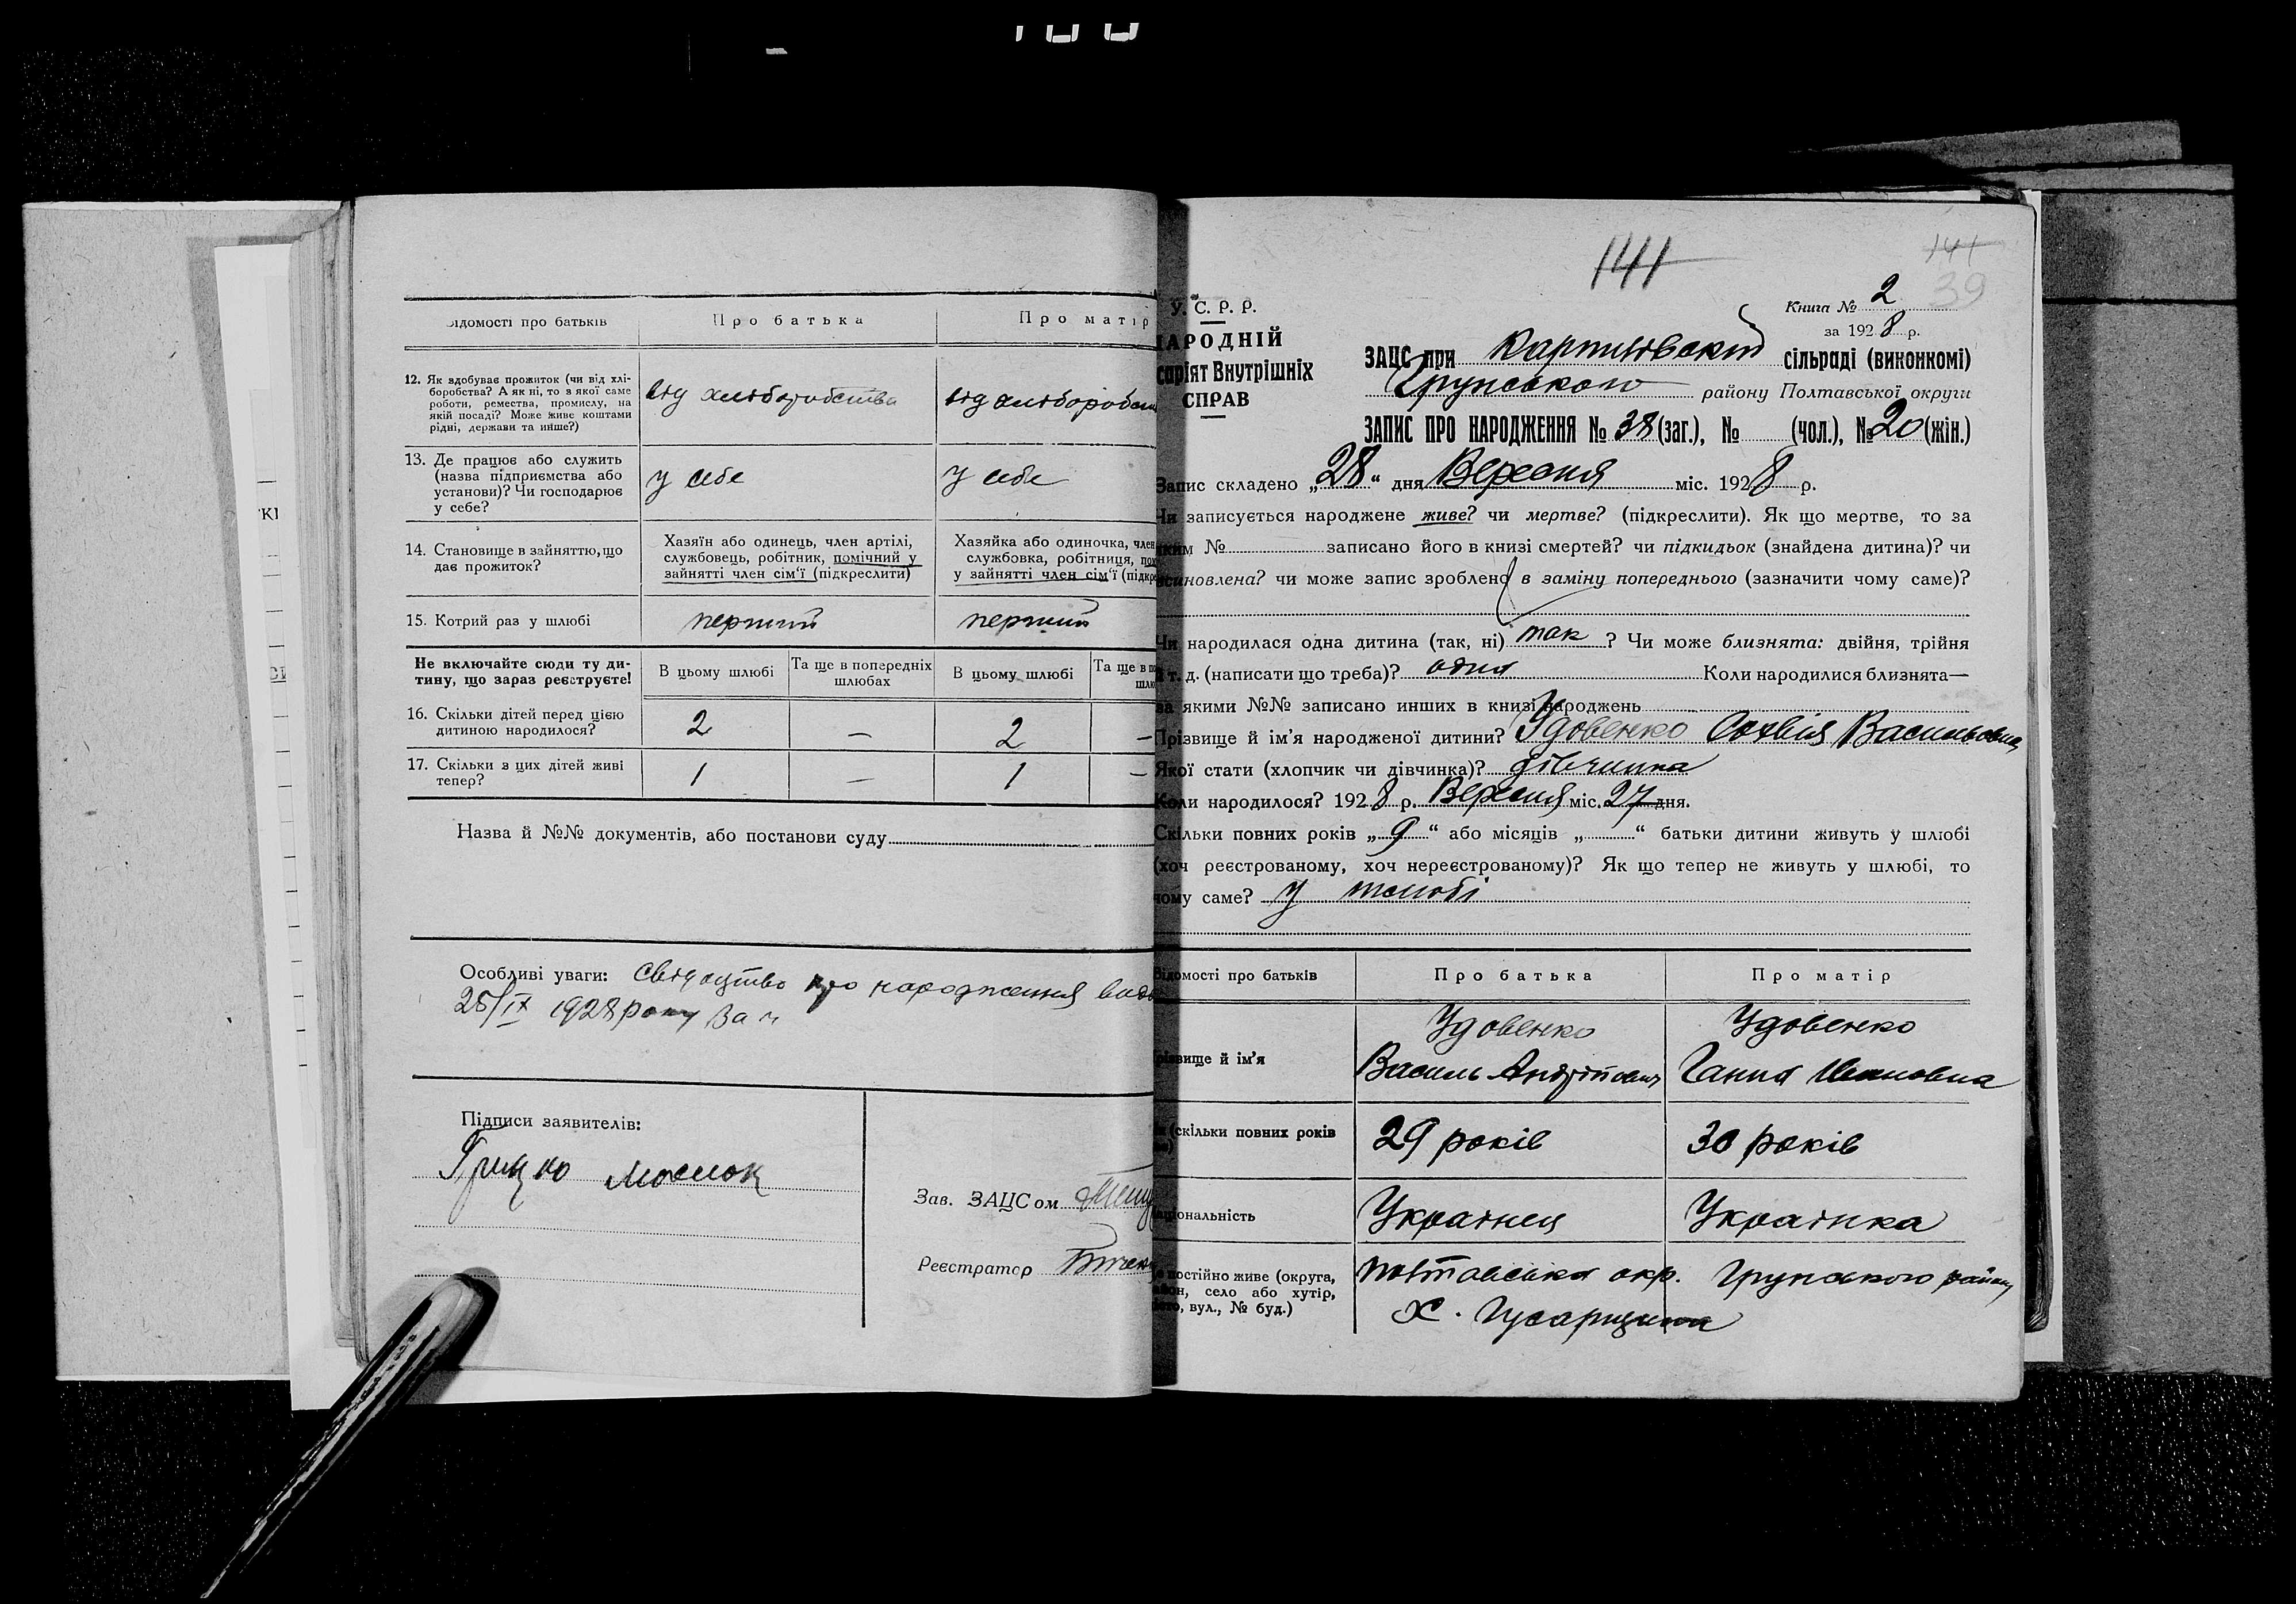 Відомості про батьків
Про батька
Про матір
12. Як здобуває прожиток (чи від хлі-
боробства? А як ні, то з якої саме
роботи, ремества, промислу, на
якій посаді? Може живе коштами
рідні, держави та инше?)
від хліборобства
від хліборобс
13. Де працює або служить
(назва підприємства або
установи)? Чи господарює
у себе?
у себе
у себе
14. Становище в зайняттю, що
дає прожиток?
Хазяїн або одинець, член артілі,
службовець, робітник, помічний у
зайнятті член сім'ї (підкреслити)
Хазяйка або одиночка, член
службовка, робітниця, по
у зайнятті член сім'ї (підкре
15. Котрий раз у шлюбі
перший
перший
Не включайте сюди ту ди-
тину, що зараз реєструєте!
В цьому шлюбі
Та ще в попередніх
шлюбах
В цьому шлюбі
Та ще в по
шлю
16. Скільки дітей перед цією
дитиною народилося?
2
—
2
—
17. Скільки з цих дітей живі
тепер?
1
—
1
—
Назва й №№ документів, або постанови суду
Особливі уваги: свідоцтво про народження вида
28/IX 1928 року за ч
Підписи заявителів:
Грицко
Зав. ЗАЦСом
Реєстратор
141
141
39
У. С. Р. Р.
НАРОДНІЙ
саріят Внутрішніх
СПРАВ
Книга № 2
за 1928 р.
ЗАЦС при сільраді (виконкомі)
Грунського району Полтавської округи
ЗАПИС ПРО НАРОДЖЕННЯ № 38 (заг.), № (чол.), № 20 (жін.)
Запис складено „28“ дня Вересня міс. 1928 р.
Чи записується народжене живе? чи мертве? (підкреслити). Як що мертве, то за
яким № записано його в книзі смертей? чи підкидьок (знайдена дитина)? чи
всиновлена? чи може запис зроблено в заміну попереднього (зазначити чому саме)?
Чи народилася одна дитина (так, ні) так ? Чи може близнята: двійня, трійня
і т. д. (написати що треба)? одна Коли народилися близнята—
за якими №№ записано инших в книзі народжень
Прізвище й ім'я народженої дитини? Удовенко Сохвія Васильовна
Якої стати (хлопчик чи дівчинка)? дівчинка
Коли народилося? 1928 р. Вересня міс. 27 дня.
Скільки повних років „9“ або місяців „ “ батьки дитини живуть у шлюбі
(хоч реєстрованому, хоч нереєстрованому)? Як що тепер не живуть у шлюбі, то
чому саме? у шлюбі
Відомості про батьків
Про батька
Про матір
різвище й ім'я
Удовенко
Василь Андрійович
Удовенко
Ганна Ивановна
(скільки повних років
29 років
30 років
аціональність
Українец
Українка
постійно живе (округа,
айон, село або хутір,
вул., № буд.)
Полтавська окр. Грунського району
х. Гусарщина